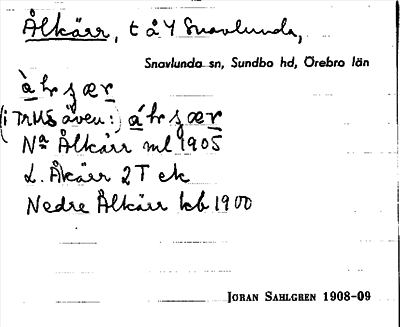 Ålkärr, t å 4 Snavlunda,
Snavlunda sn, Sundbo hd, Örebro län
(i även:)
Na Ålkärr ml 1905
L. Åkärr 2 T ek
Nedre Ålkärr kb 1900
JÖRAN SAHLGREN 1908-09